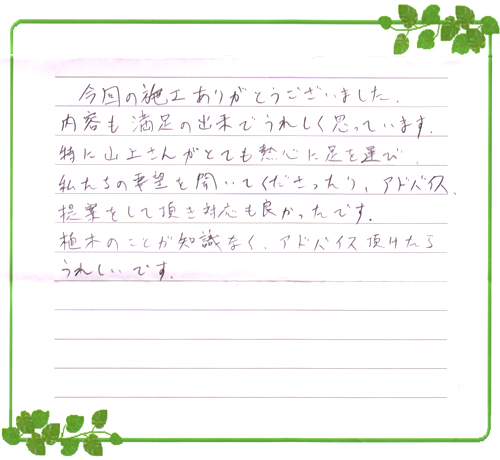 今回の施工ありがとうございました.
内容も満足の出来でうれしく思っています.
特に山上さんがとても熱心に足を運び、
私たちの要望を聞いてくださったり、アドバイス、
提案をして頂き対応も良かったです.
植木のことが知識なく、アドバイス頂けたら
うれしいです.